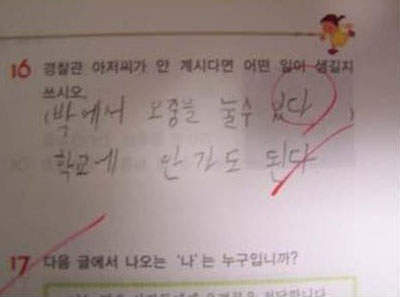 16 경찰관 아저씨가 안 계시다면 어떤 일이 생길지
쓰시오
(박에서 오줌을 눌수 있다)
학교에 안가도 된다
17 다음 글에서 나오는 '나'는 누구입니까?